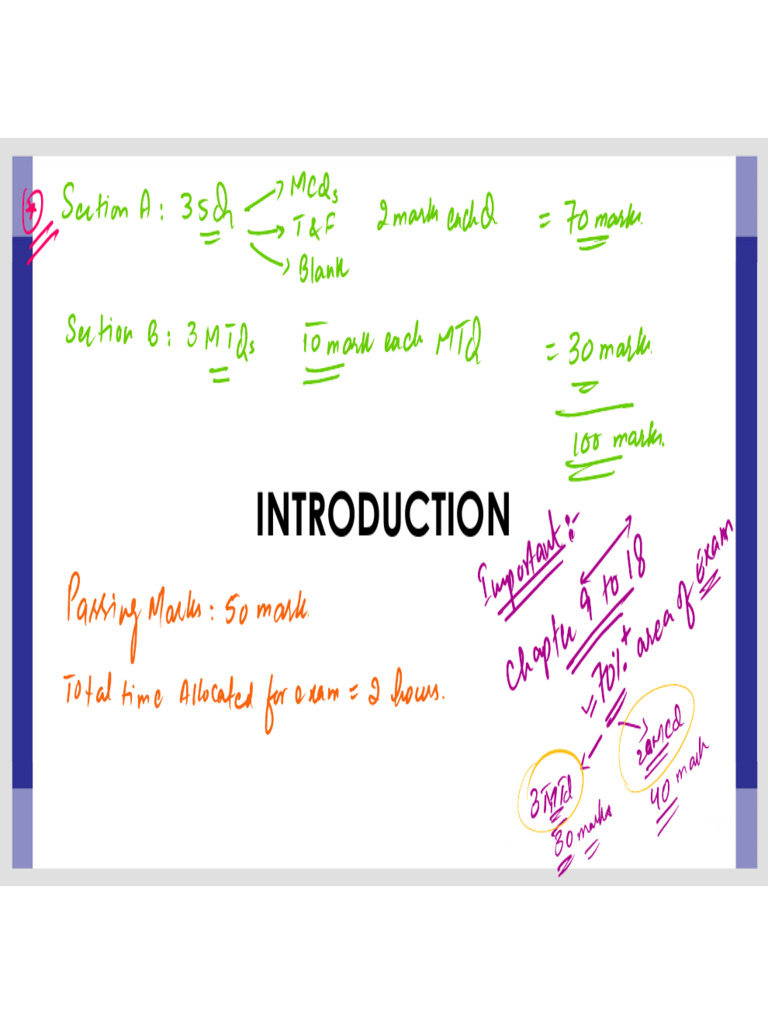 * Section A: 35Q → MCQs 2 mark each Q = 70 marks
→ T&F
→ Blank
Section B: 3 MTQs 10 mark each MTQ = 30 mark.
100 mark.
INTRODUCTION
Important:-
Chapter 9 to 18
= 70%+ area of exam
Passing Marks: 50 mark
Total time Allocated for exam = 2 hours.
3 MTQ
30 marks
20 MCQ
40 mark